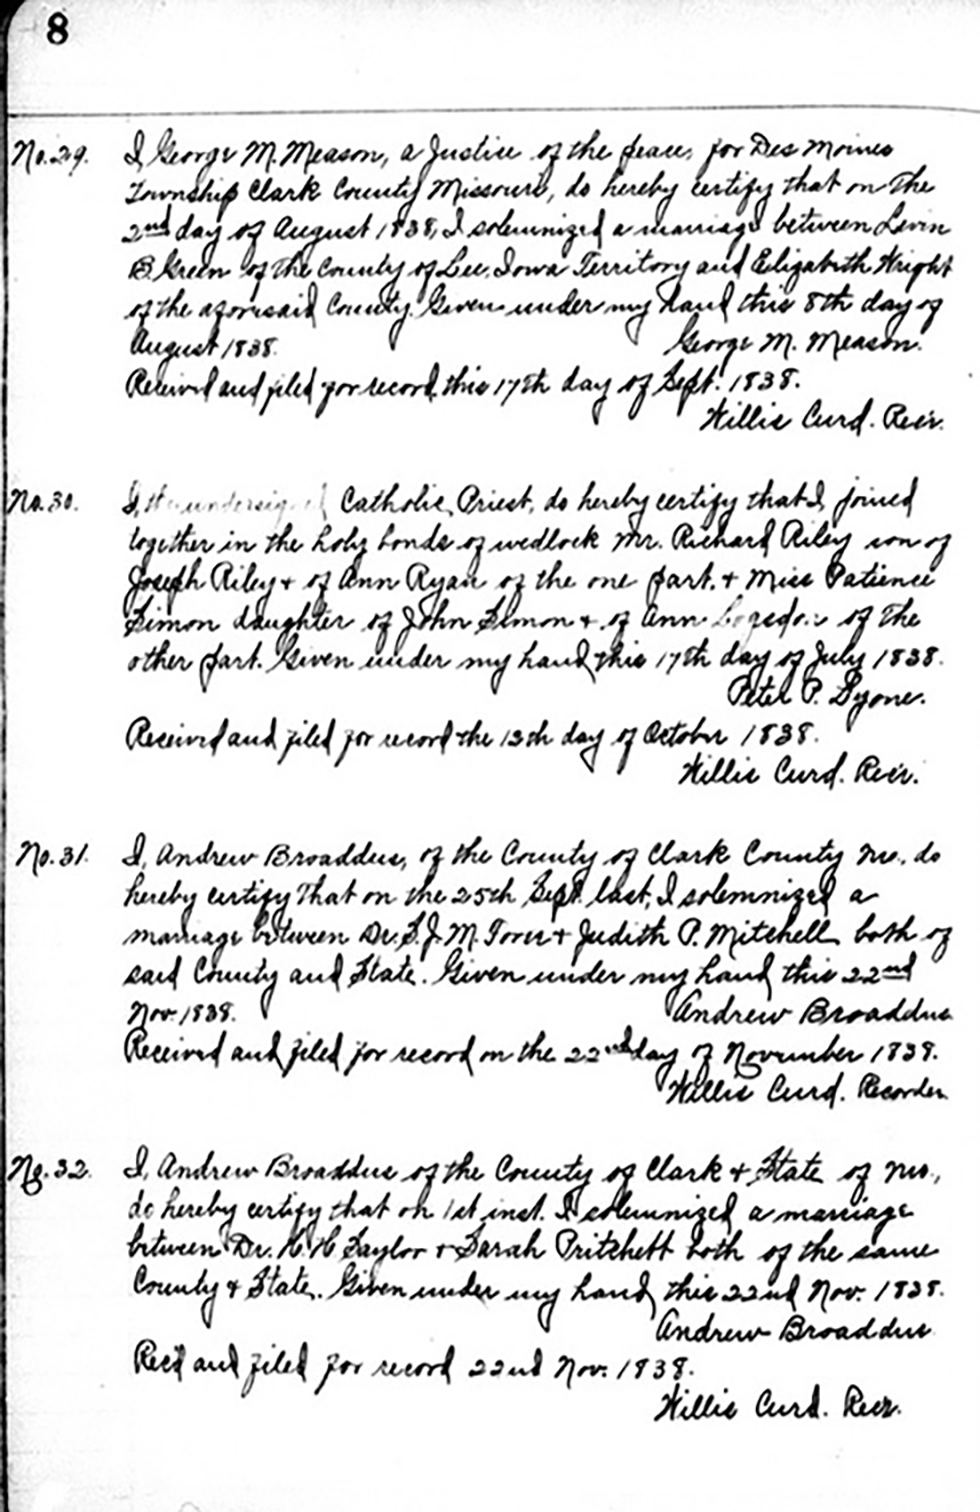 8
No. 29. I George M. Meason, a Justice of the peace, for Des Moines
Township Clark County Missouri, do hereby certify that on the
2nd day of August 1838, I solemnized a marriage between Levin
B. Green of the County of Lee, Iowa Territory and Elizabeth Wright
of the aforesaid County. Given under my hand this 8th day of
August 1838. George M. Meason.
Received and filed for record this 17th day of Sept. 1838.
Willis Curd. Recr.
No. 30. I, the undersigned Catholic Priest, do hereby certify that I joined
together in the holy bonds of wedlock Mr. Richard Riley son of
Joseph Riley & of Ann Ryan of the one part. & Miss Patience
Simon daughter of John Simon & of Ann Logsdon of the
other part. Given under my hand this 17th day of July 1838.
Peter P.
Received and filed for record the 13th day of October 1838.
Willis Curd. Recr.
No. 31. I, Andrew Broaddus, of the County of Clark County Mo., do
hereby certify that on the 25th Sept. last, I solemnized a
marriage between Dr. S. J. M. & Judith P. Mitchell both of
said County and State. Given under my hand this 22nd
Nov. 1838. Andrew Broaddus
Received and filed for record on the 22nd day of November 1838.
Willis Curd. Recorder
No. 32. I, Andrew Broaddus of the County of Clark & State of Mo.,
do hereby certify that on 1st inst. I solemnized a marriage
between Dr. H. H. Taylor & Sarah Pritchett both of the same
County & State. Given under my hand this 22nd Nov. 1838.
Andrew Broaddus
Rec'd and filed for record 22nd Nov. 1838.
Willis Curd. Recr.